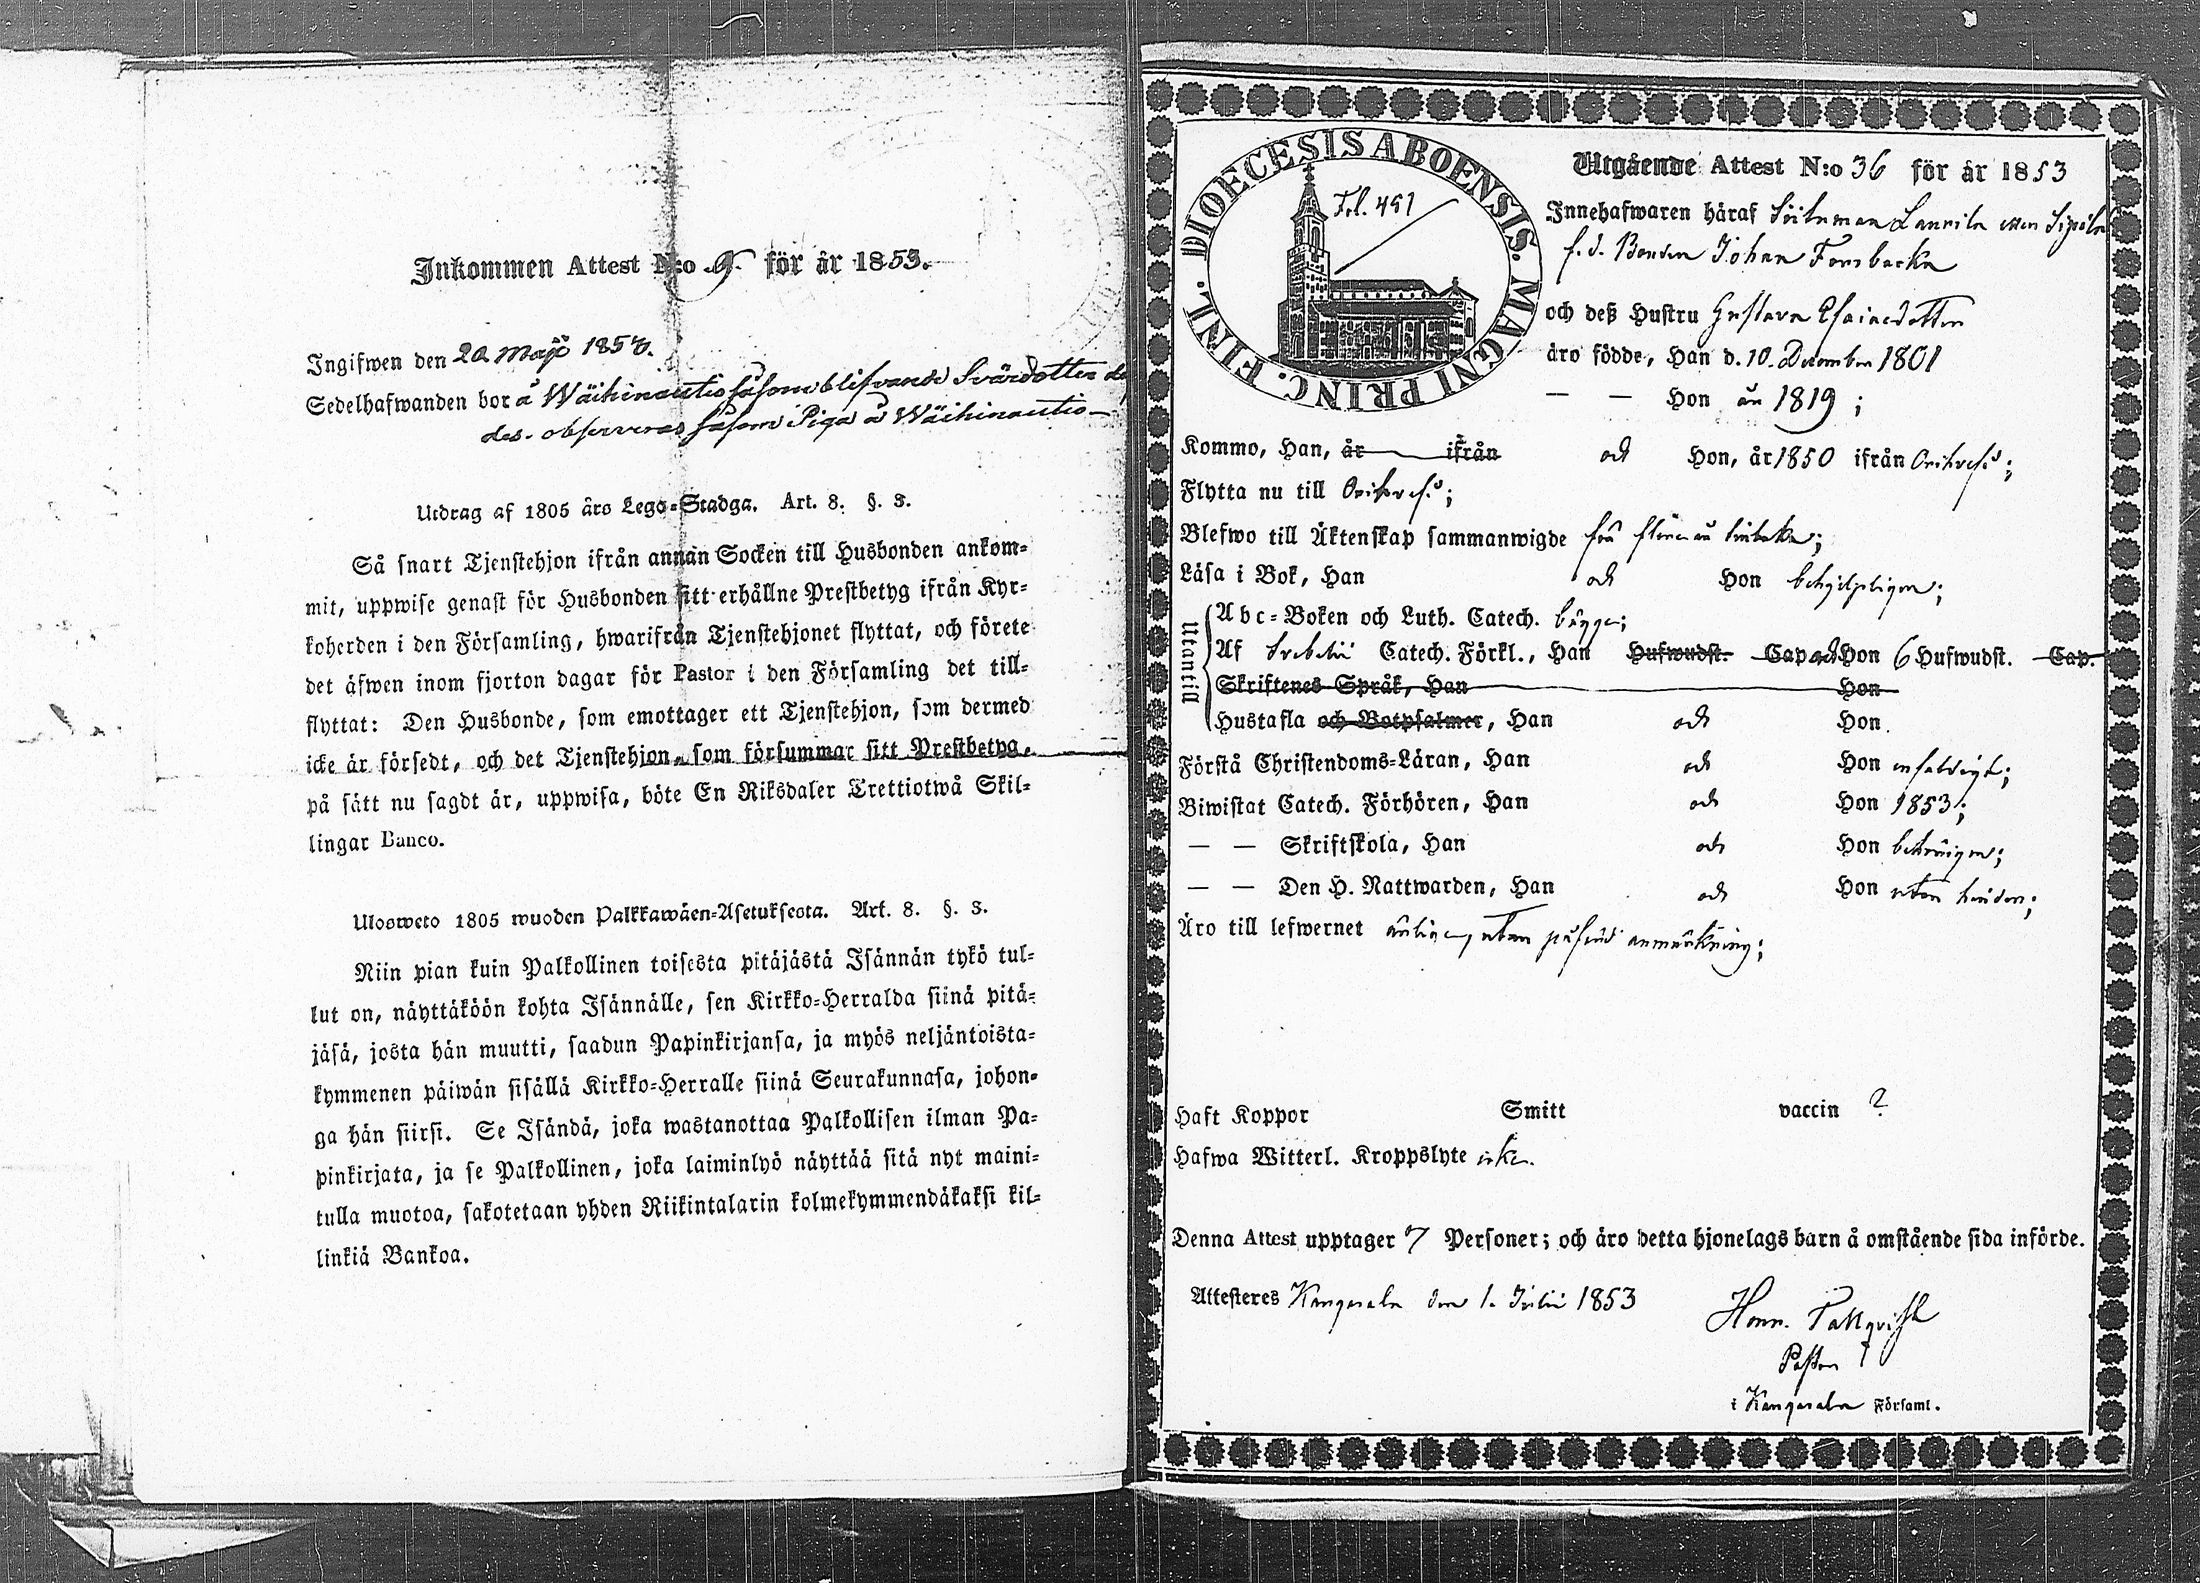 Inkommen Attest N:o 9. för år 1853.
Ingifwen den 20 Maji 1853.
Sedelhafwanden bor å Wäihinautio såsom blifvande Svärdotter
des. observeras såsom Piga å Wäihinautio
Utdrag af 1805 års Lego=Stadga. Art. 8. §. 3.
Så snart Tjenstehjon ifrån annan Socken till Husbonden ankom=
mit, uppwise genast för Husbonden sitt erhållne Prestbetyg ifrån Kyr=
koherden i den Församling, hwarifrån Tjenstehjonet flyttat, och förete
det äfwen inom fjorton dagar för Pastor i den Församling det till=
flyttat: Den Husbonde, som emottager ett Tjenstehjon, som dermed
icke är försedt, och det Tjenstehjon, som försummar sitt Prestbetyg,
på sätt nu sagdt är, uppwisa, böte En Riksdaler Trettiotwå Skil=
lingar Banco.
Ulosweto 1805 wuoden Palkkawäen=Asetuksesta. Art. 8. §. 3.
Niin pian kuin Palkollinen toisesta pitäjästä Isännän tykö tul=
lut on, näyttäköön kohta Isännälle, sen Kirkko=Herralda siinä pitä=
jäsä, josta hän muutti, saadun Papinkirjansa, ja myös neljäntoista=
kymmenen päiwän sisällä Kirkko=Herralle siinä Seurakunnasa, johon=
ga hän siirsi. Se Isändä, joka wastanottaa Palkollisen ilman Pa=
pinkirjata, ja se Palkollinen, joka laiminlyö näyttää sitä nyt maini=
tulla muotoa, sakotetaan yhden Riikintalarin kolmekymmendäkaksi kil=
linkiä Bankoa.
DIOECESIS ABOENSIS. MAGNI PRINC. FINL.
Fol. 491
Utgående Attest N:o 36 för år 1853
Innehafwaren häraf Laurila
f.d. Bonden Johan Forsbacka
och deß Hustru Gustava Esaiaedotter
äro födde, Han d. 10. December 1801
— — Hon år 1819;
Kommo, Han, år ifrån och Hon, år 1850 ifrån Orihvesi;
Flytta nu till Orihvesi;
Blefwo till Äktenskap sammanwigde för flere år tillbaka;
Läsa i Bok, Han och Hon behjelpligen;
Utantill
Abc=Boken och Luth. Catech. bägge;
Af Svebelii Catech. Förkl., Han Hufwudst. Cap och Hon 6 Hufwudst. Cap.
Skriftenes Språk, Han Hon
Hustafla och Botpsalmer, Han och Hon
Förstå Christendoms=Läran, Han och Hon enfaldigt;
Biwistat Catech. Förhören, Han och Hon 1853;
— — Skriftskola, Han och Hon behörigen;
— — Den H. Nattwarden, Han och Hon utan hinder;
Äro till lefwernet utan anmärkning;
Haft Koppor Smitt vaccin ?
Hafwa Witterl. Kroppslyte icke.
Denna Attest upptager 7 Personer; och äro detta hjonelags barn å omstående sida införde.
Attesteres Kangasala den 1. Julii 1853
Henr. Tallqvist
Pastor
i Kangasala Församl.